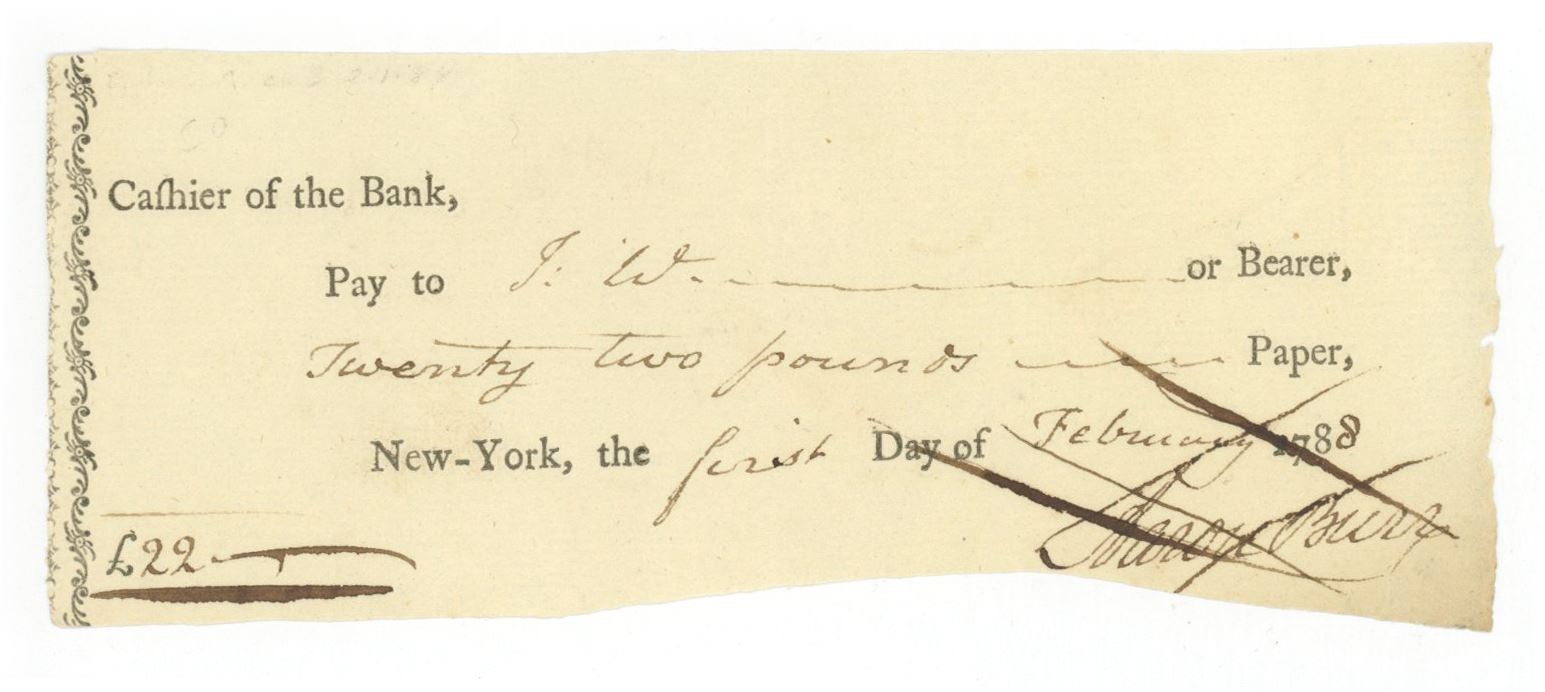 Caſhier of the Bank,
Pay to J: W. or Bearer,
Twenty two pounds Paper,
New-York, the first Day of February 1788
Aaron Burr
£22